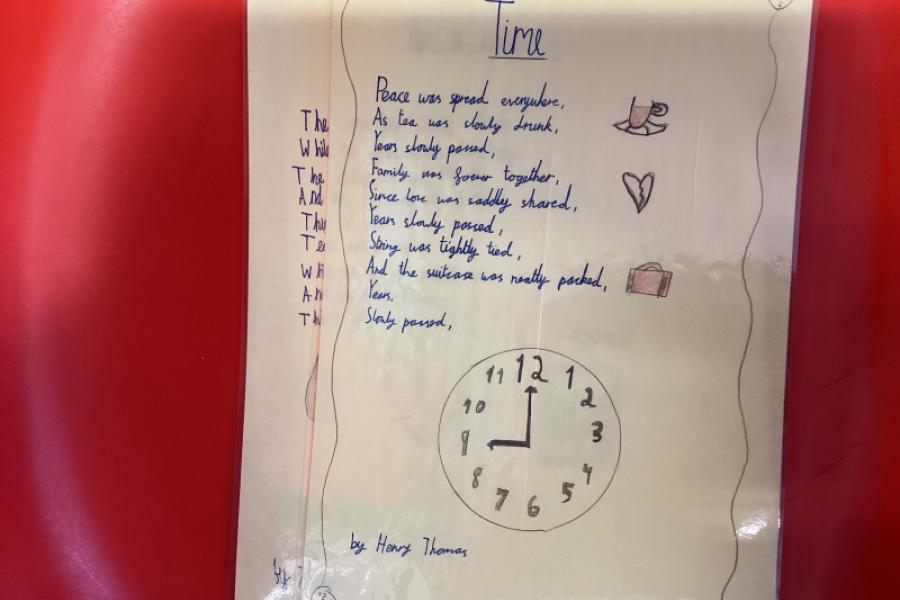 Time
Peace was spread everywhere,
As tea was slowly drunk,
Years slowly passed,
Family was forever together,
Since love was saddly shared,
Years slowly passed,
String was tightly tied,
And the suitcase was neatly packed,
Years.
Slowly passed,
The
And
11 12 1
10 2
9 3
8 4
7 6 5
by Henry Thomas
by